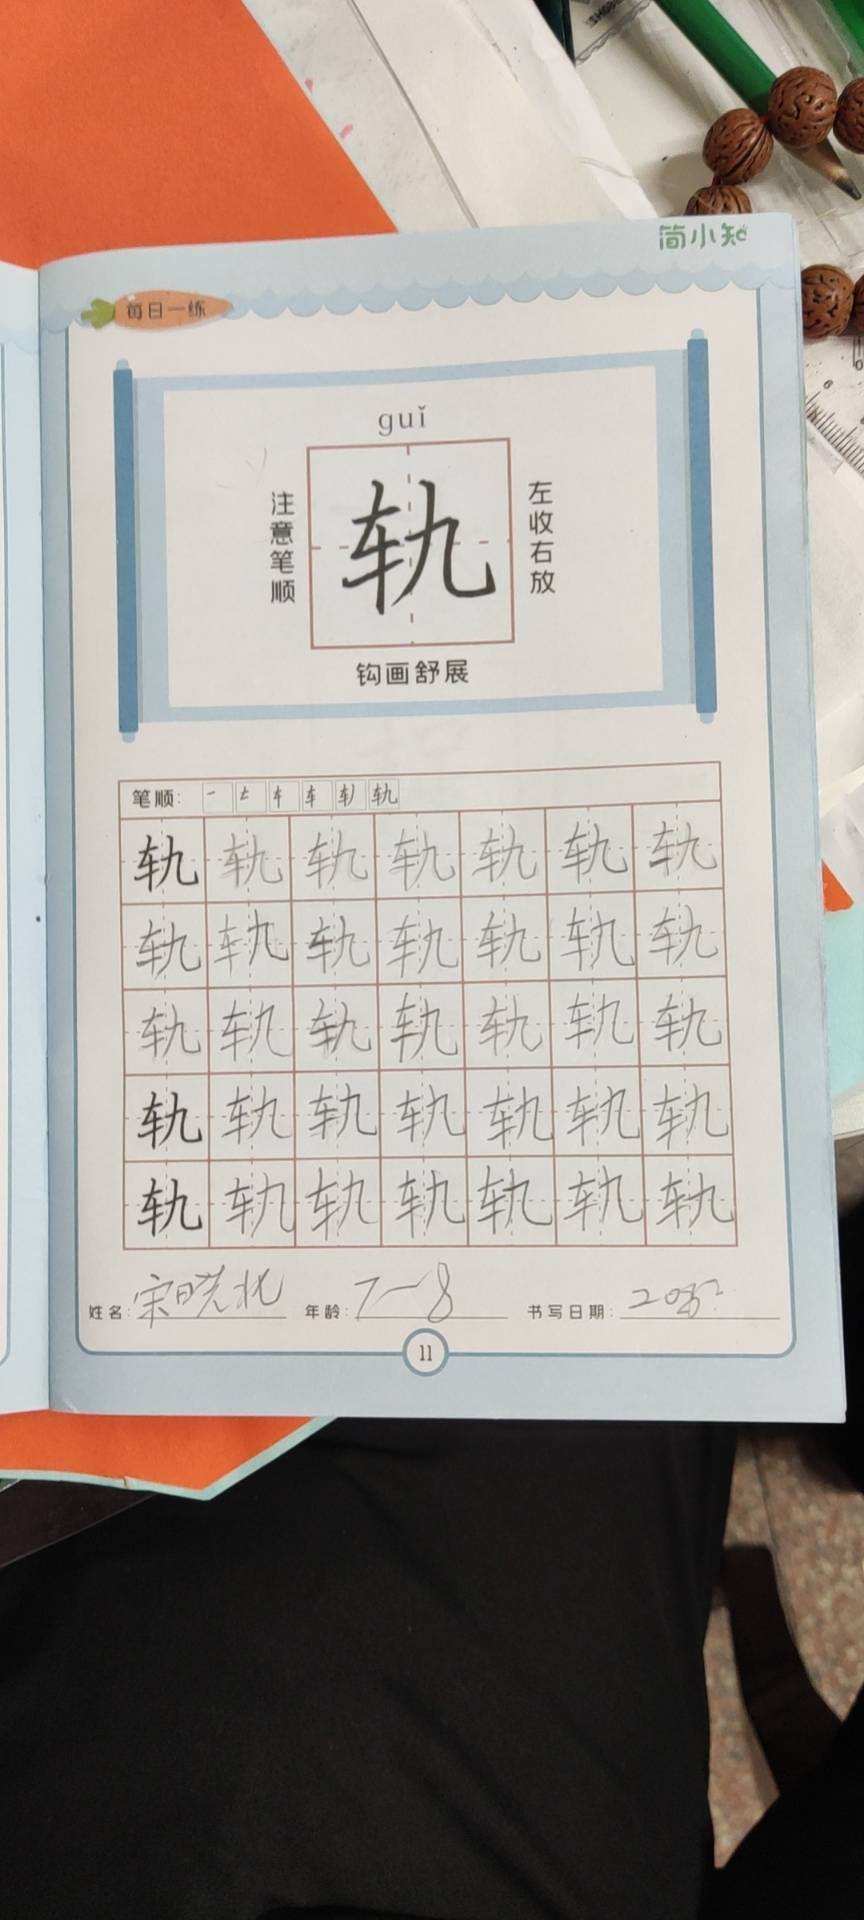 简小知
每日一练
guǐ
注意笔顺
轨
左收右放
钩画舒展
笔顺: 轨
轨 轨 轨 轨 轨 轨 轨
轨 轨 轨 轨 轨 轨 轨
轨 轨 轨 轨 轨 轨 轨
轨 轨 轨 轨 轨 轨 轨
轨 轨 轨 轨 轨 轨 轨
姓名: 宋晓 年龄: 7-8 书写日期:
11